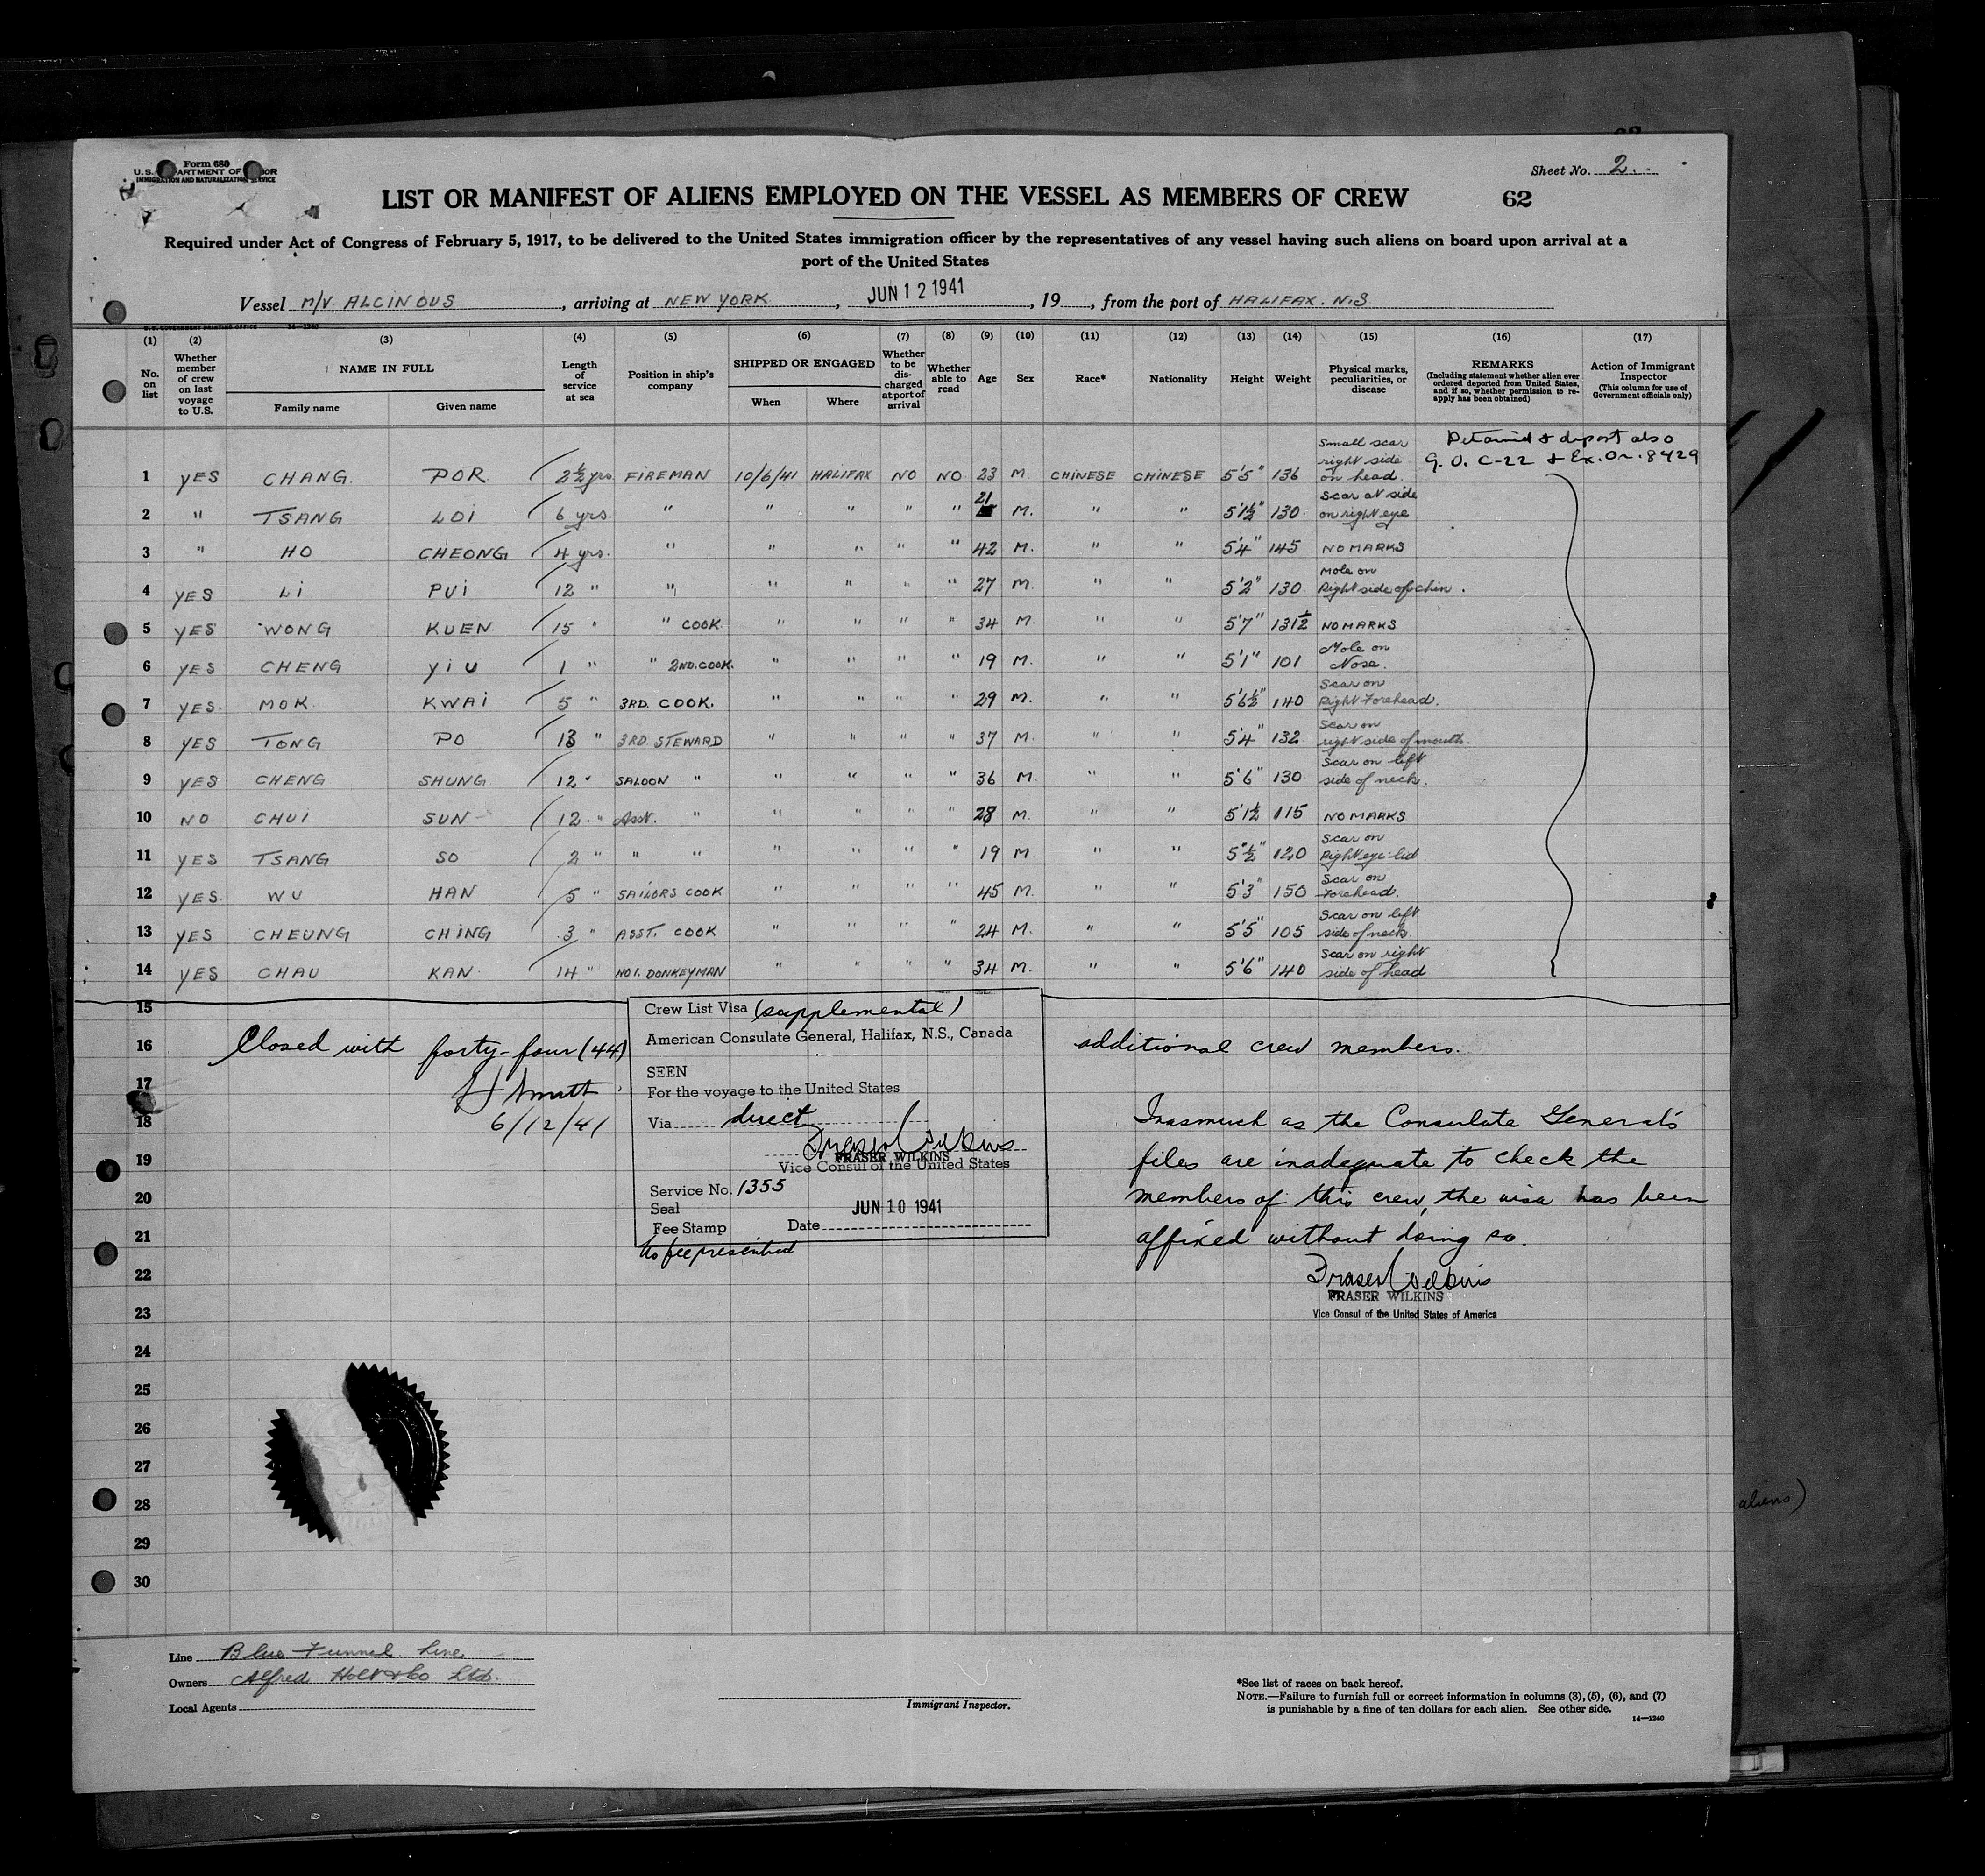 Form 680
U.S. DEPARTMENT OF LABOR
IMMIGRATION AND NATURALIZATION SERVICE
Sheet No. 2.
LIST OR MANIFEST OF ALIENS EMPLOYED ON THE VESSEL AS MEMBERS OF CREW
62
Required under Act of Congress of February 5, 1917, to be delivered to the United States immigration officer by the representatives of any vessel having such aliens on board upon arrival at a
port of the United States
Vessel M/V. ALCINOUS, arriving at NEW YORK, JUN 12 1941, 19, from the port of HALIFAX. N.S
U.S. GOVERNMENT PRINTING OFFICE 14—1240
(1) No. on list (2) Whether member of crew on last voyage to U.S. (3) NAME IN FULL Family name Given name (4) Length of service at sea (5) Position in ship's company (6) SHIPPED OR ENGAGED When Where (7) Whether to be discharged at port of arrival (8) Whether able to read (9) Age (10) Sex (11) Race* (12) Nationality (13) Height (14) Weight (15) Physical marks, peculiarities, or disease (16) REMARKS (Including statement whether alien ever ordered deported from United States, and if so, whether permission to reapply has been obtained) (17) Action of Immigrant Inspector (This column for use of Government officials only)
Detained & deport also
G.O. C-22 & Ex. Or. 8429
1 YES CHANG. POR. 2½ yrs. FIREMAN 10/6/41 HALIFAX NO NO 23 M. CHINESE CHINESE 5'5" 136 Small scar right side on head.
2 " TSANG LOI 6 yrs. " " " " " 21 M. " " 5'1½" 130 Scar at side on right eye
3 " HO CHEONG 4 yrs. " " " " " 42 M. " " 5'4" 145 NO MARKS
4 YES LI PUI 12 " " " " " " 27 M. " " 5'2" 130 Mole on Right side of chin.
5 YES WONG KUEN 15 " " COOK " " " " 34 M. " " 5'7" 131½ NO MARKS
6 YES CHENG YIU 1 " " 2ND. COOK. " " " " 19 M. " " 5'1" 101 Mole on Nose.
7 YES. MOK KWAI 5 " 3RD. COOK. " " " " 29 M. " " 5'6½" 140 Scar on Right Forehead.
8 YES TONG PO 13 " 3RD. STEWARD " " " " 37 M. " " 5'4" 132 Scar on right side of mouth.
9 YES CHENG SHUNG 12 " SALOON " " " " " 36 M. " " 5'6" 130 Scar on left side of neck.
10 NO CHUI SUN 12 " Asst. " " " " " 28 M. " " 5'1½ 115 NO MARKS
11 YES TSANG SO 2 " " " " " " " 19 M. " " 5"½" 120 Scar on Right eye-lid
12 YES. WU HAN 5 " SAILORS COOK " " " " 45 M. " " 5'3" 150 Scar on Forehead.
13 YES CHEUNG CHING 3 " ASST. COOK " " " " 24 M. " " 5'5" 105 Scar on left side of neck.
14 YES CHAU KAN 14 " NO1. DONKEYMAN " " " " 34 M. " " 5'6" 140 Scar on right side of head
15
16 Closed with forty-four (44) additional crew members.
17 H Smith
18 6/12/41
19
20
21
22
23
24
25
26
27
28
29
30
Crew List Visa (supplemental)
American Consulate General, Halifax, N.S., Canada
SEEN
For the voyage to the United States
Via direct
Fraser Wilkins
FRASER WILKINS
Vice Consul of the United States
Service No. 1355
Seal JUN 10 1941
Fee Stamp Date
No fee prescribed
Inasmuch as the Consulate General's
files are inadequate to check the
members of this crew, the visa has been
affixed without doing so.
Fraser Wilkins
FRASER WILKINS
Vice Consul of the United States of America
aliens)
Line Blue Funnel Line.
Owners Alfred Holt & Co Ltd.
Local Agents
Immigrant Inspector.
*See list of races on back hereof.
NOTE.—Failure to furnish full or correct information in columns (3), (5), (6), and (7)
is punishable by a fine of ten dollars for each alien. See other side.
14—1240